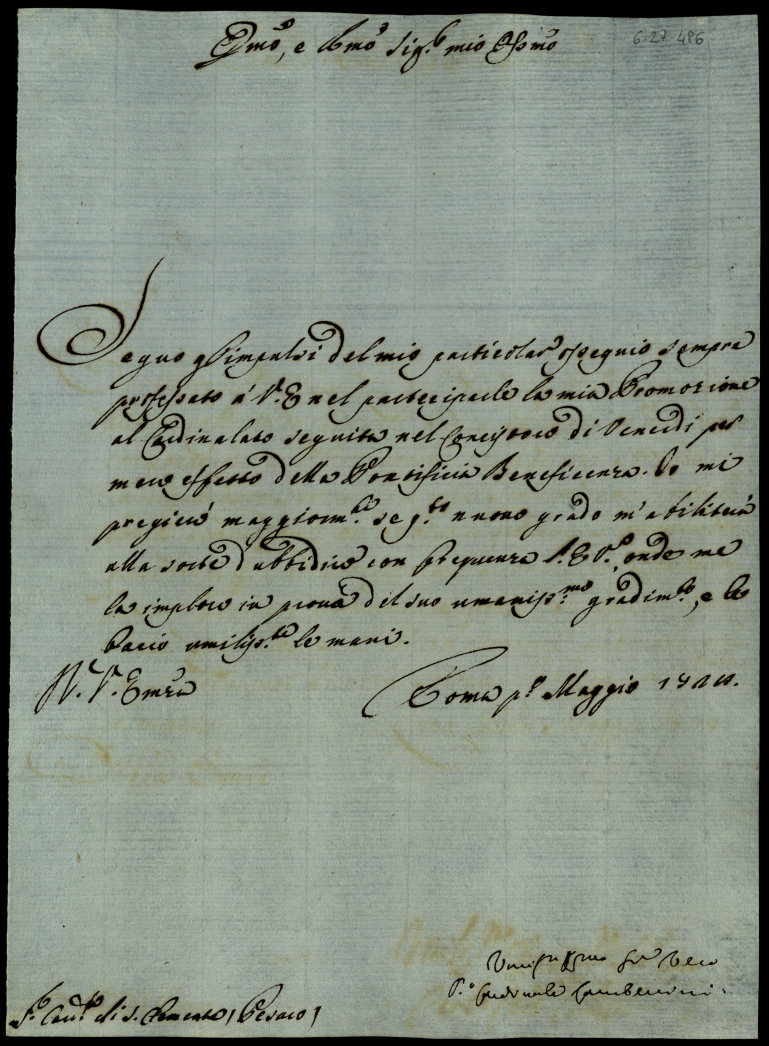 Em̃o, e Rmo Sig.r mio Ossmo
6-27-486
Seguo gl'impulsi del mio particolar ossequio sempre
professato á V.E nel participarle la mia Promozione
al Cardinalato seguita nel Concistoro di Venerdi per
mero effetto della Pontificia Beneficenza. Io mi
pregierò maggiorm.te se q.sto nuovo grado m'abiliterà
alla sorte d'ubbidire con frequenza l'E.V., onde me
la imploro in prova del suo umaniss.mo gradim.to, e le
bacio umiliss.te le mani.
Di V. Emza
Roma p.o Maggio
Umilissimo
Cardinale Gamberini.
S.r Card.le di S. Clemente (Pesaro)